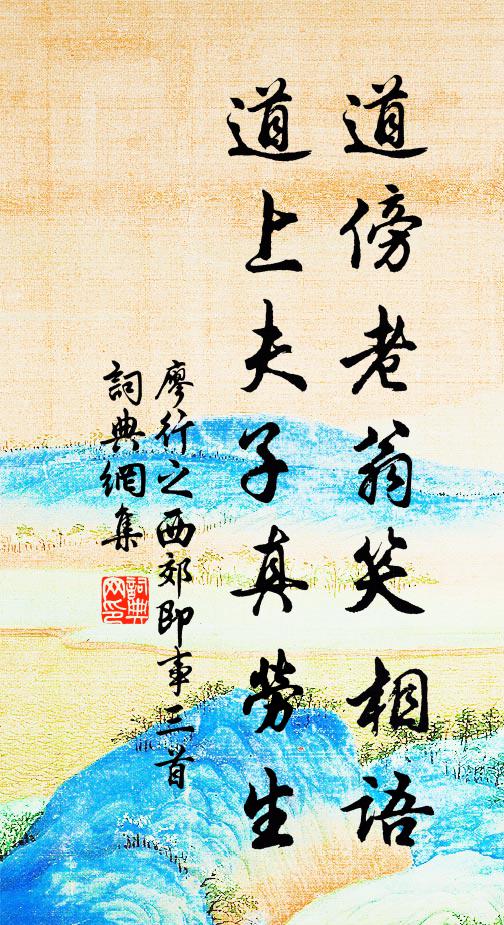 道傍老翁笑相語
道上夫子真勞生
廖行之西郊即事三首
詞典網集
詞典
网印